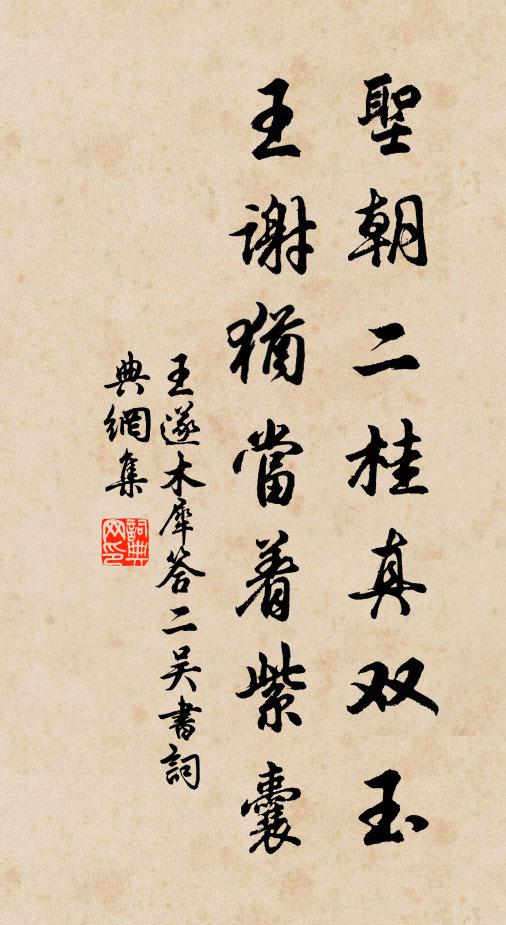 聖朝二桂真双玉
王謝猶當着紫囊
王遂木犀答二吴書詞
典網集
詞典
网印